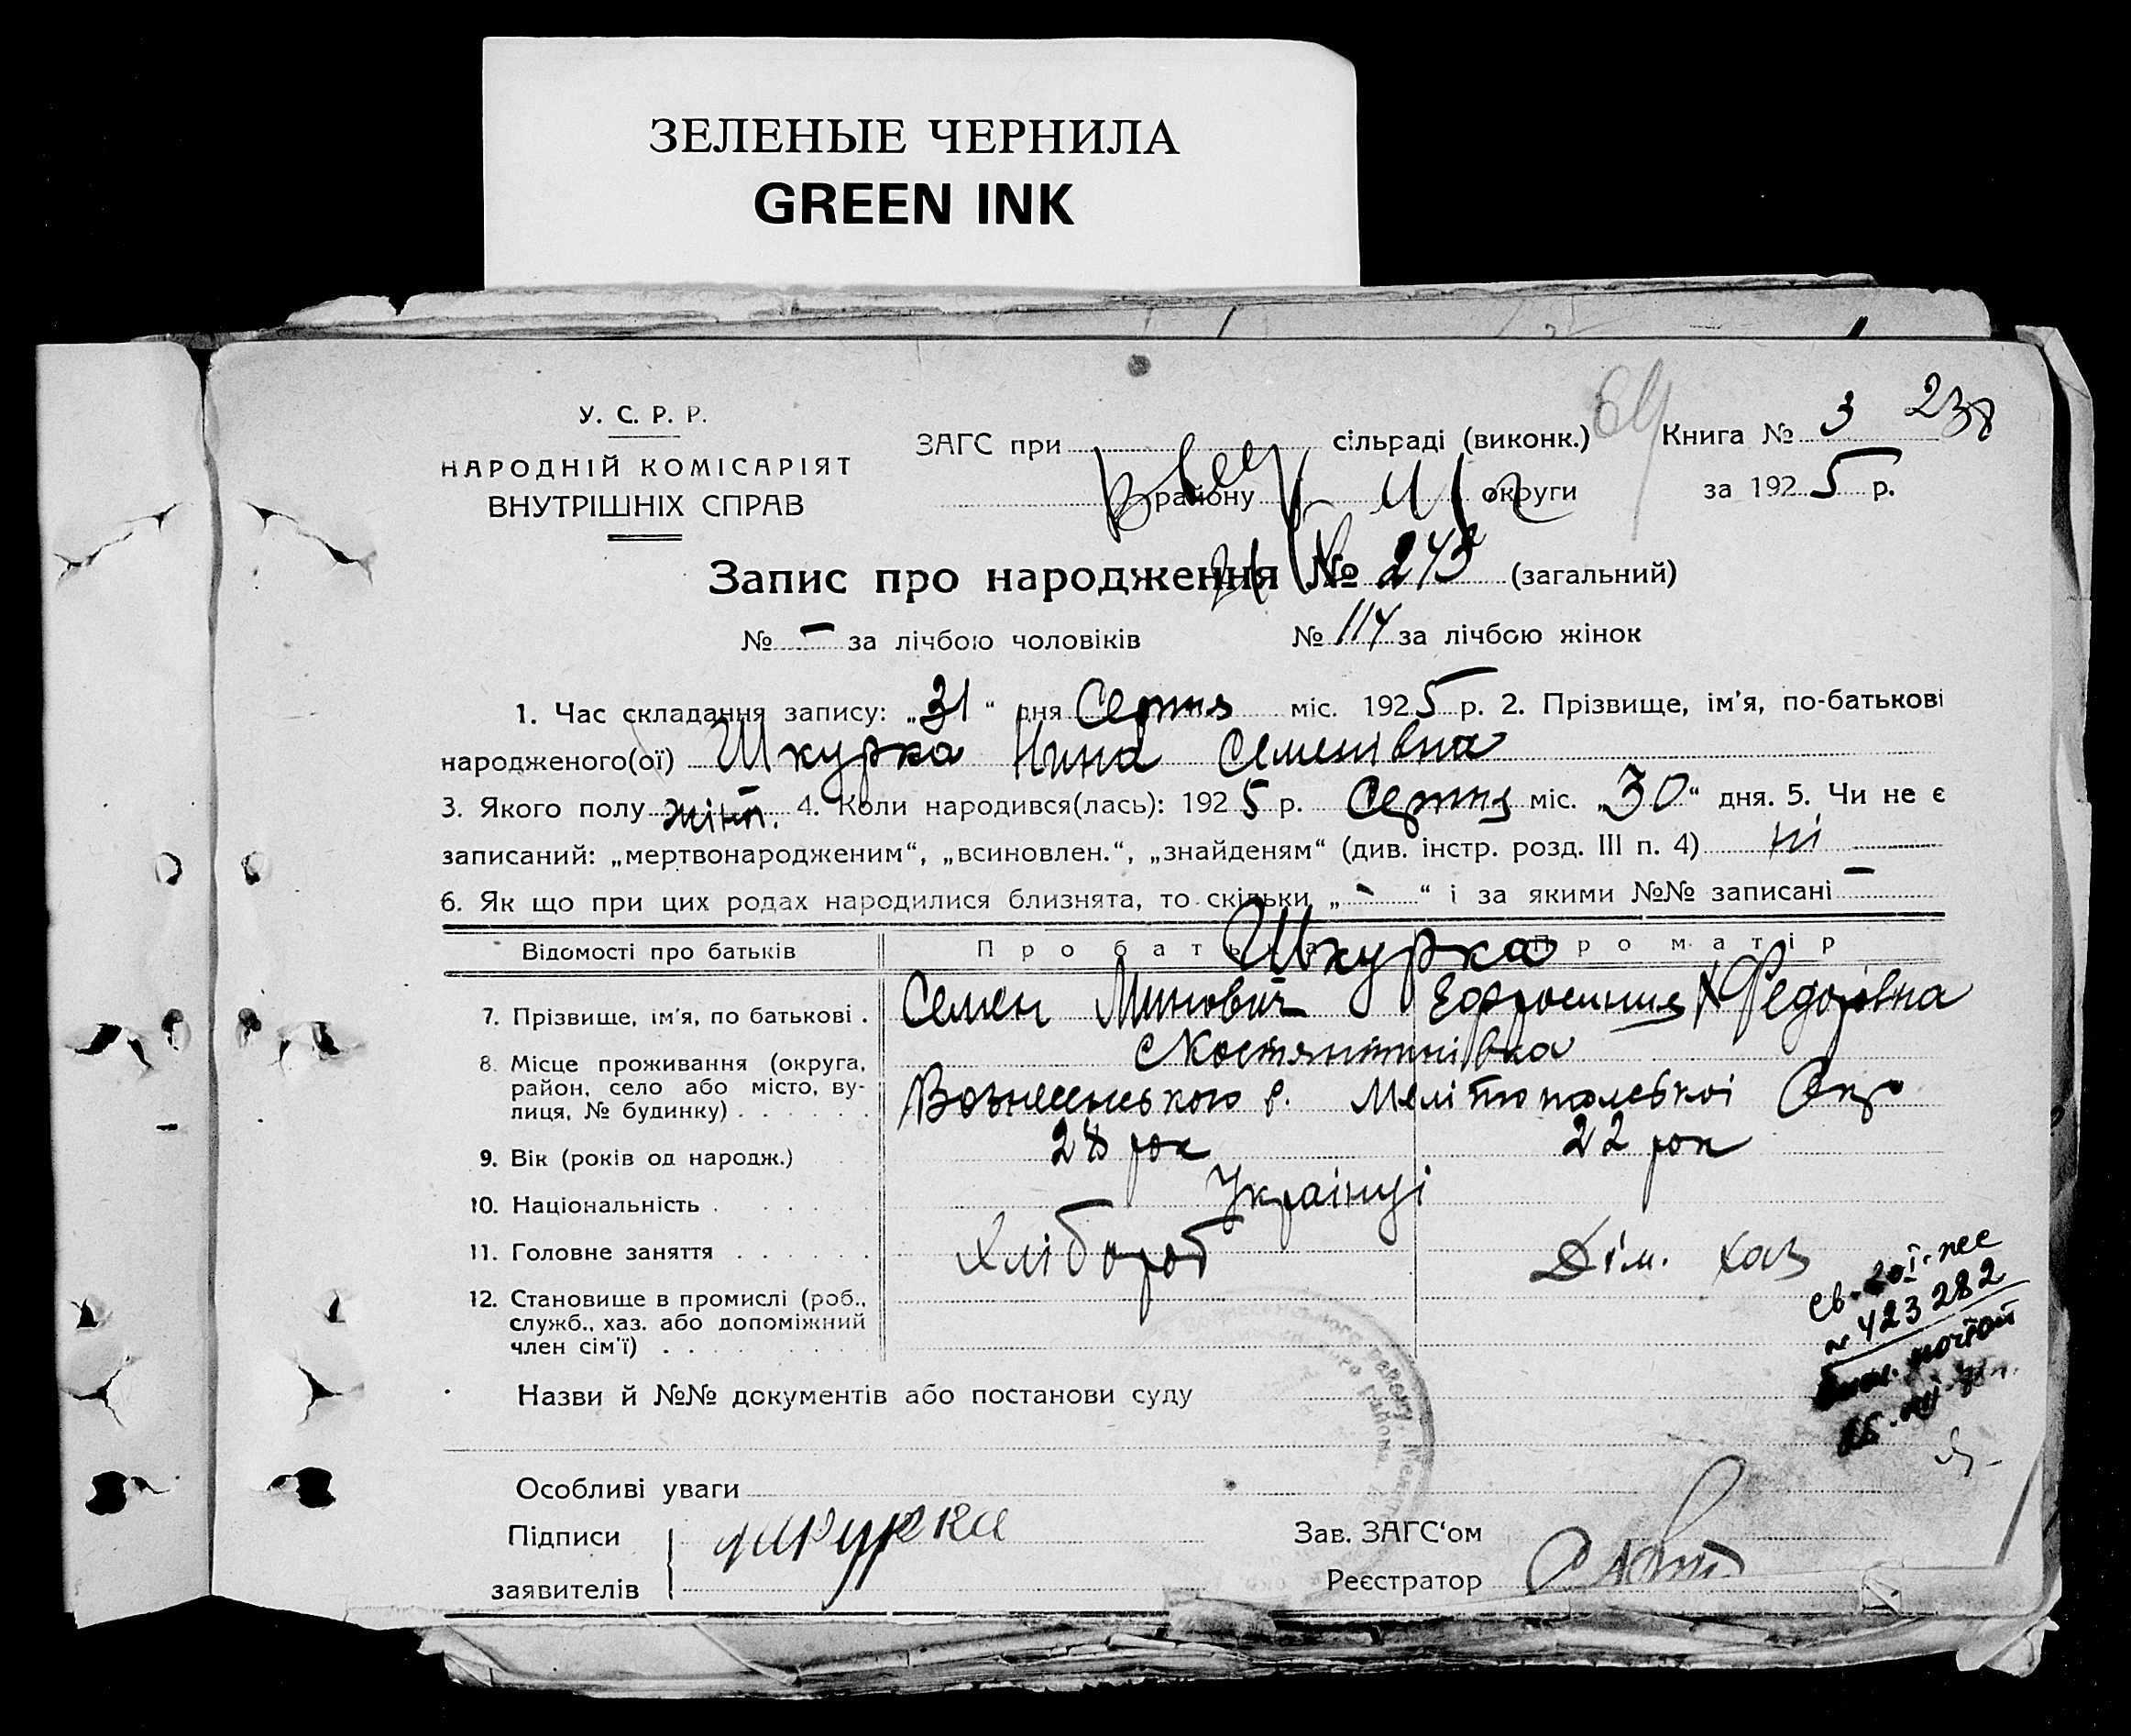 ЗЕЛЕНЫЕ ЧЕРНИЛА
GREEN INK
У. С. Р. Р.
НАРОДНІЙ КОМІСАРІЯТ
ВНУТРІШНІХ СПРАВ
ЗАГС при сільраді (виконк.)
району округи
Книга № 3 238
за 1925 р.
Запис про народження № 243 (загальний)
№ – за лічбою чоловіків № 114 за лічбою жінок
1. Час складання запису: „31“ дня Серпня міс. 1925 р. 2. Прізвище, ім'я, по-батькові
народженого(ої) Шкурка Нина Семенівна
3. Якого полу жіноч. 4. Коли народився(лась): 1925 р. Серпня міс. „30“ дня. 5. Чи не є
записаний: „мертвонародженим“, „всиновлен.“, „знайденям“ (див. інстр. розд. III п. 4) ні
6. Як що при цих родах народилися близнята, то скільки „-“ і за якими №№ записані –
Відомості про батьків Про батька Про матір
Шкурка
7. Прізвище, ім'я, по батькові . Семен Минович Ефросиния Федорівна
8. Місце проживання (округа,
район, село або місто, ву-
лиця, № будинку) . . . . . .
с Костянтинівка
Вознесенського р. Мелітопольскоі Окр
9. Вік (років од народж.) 28 рок 22 рок
10. Національність . . . . . . Українці
11. Головне заняття . . . . . . Хлібороб Дім. хаз
12. Становище в промислі (роб.,
служб., хаз. або допоміжний
член сім'ї) . . . . . . . . .
св. 20 I-
№ 423282
почтой
Назви й №№ документів або постанови суду
Особливі уваги
Підписи
заявителів
шкурка
Зав. ЗАГС'ом
Реєстратор